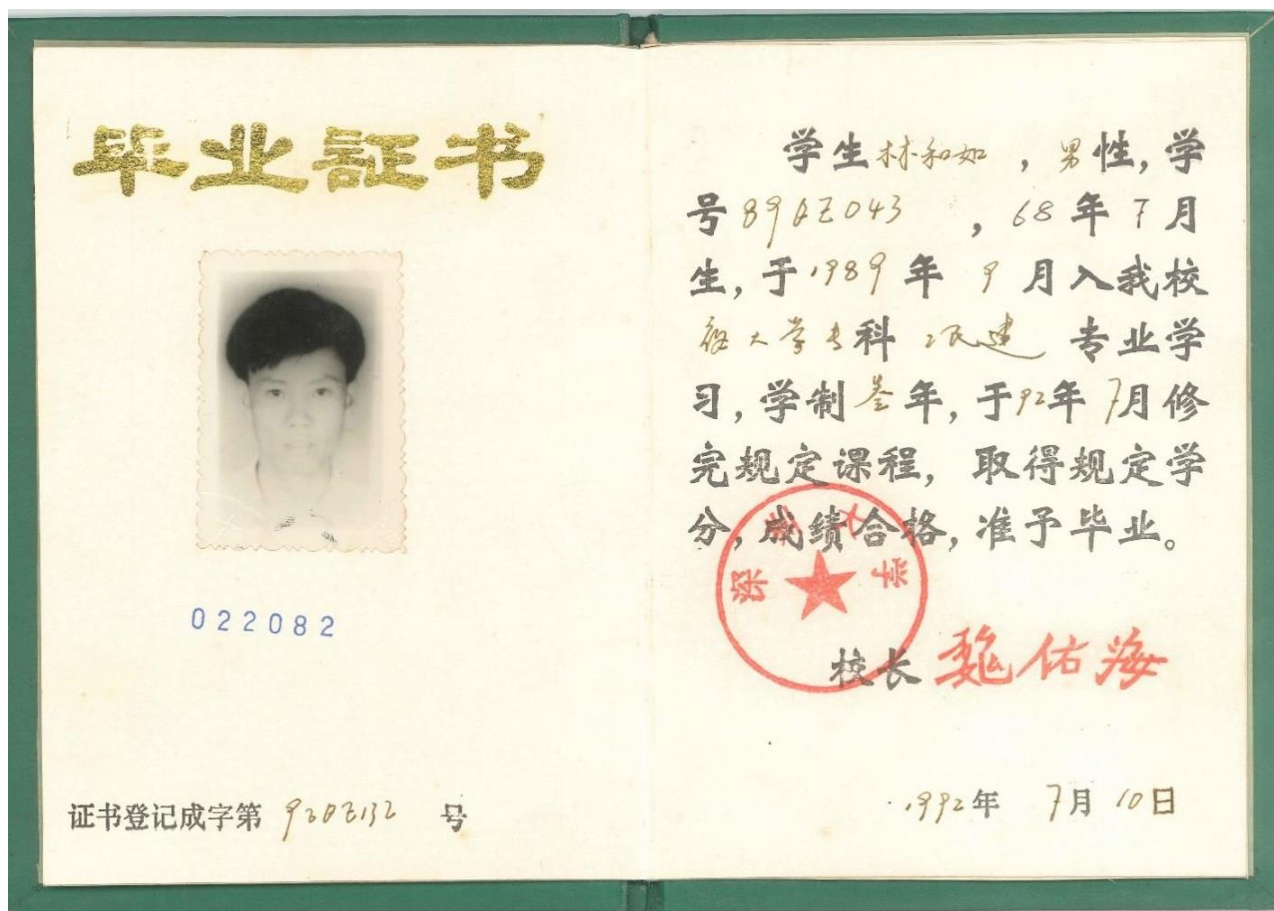 毕业证书
022082
证书登记成字第 920Z132 号
学生林和如，男性，学
号89QZ043，68年7月
生，于1989年9月入我校
大学专科 民建 专业学
习，学制叁年，于92年7月修
完规定课程，取得规定学
分，成绩合格，准予毕业。
深圳大学
校长 魏佑海
1992年 7月 10日